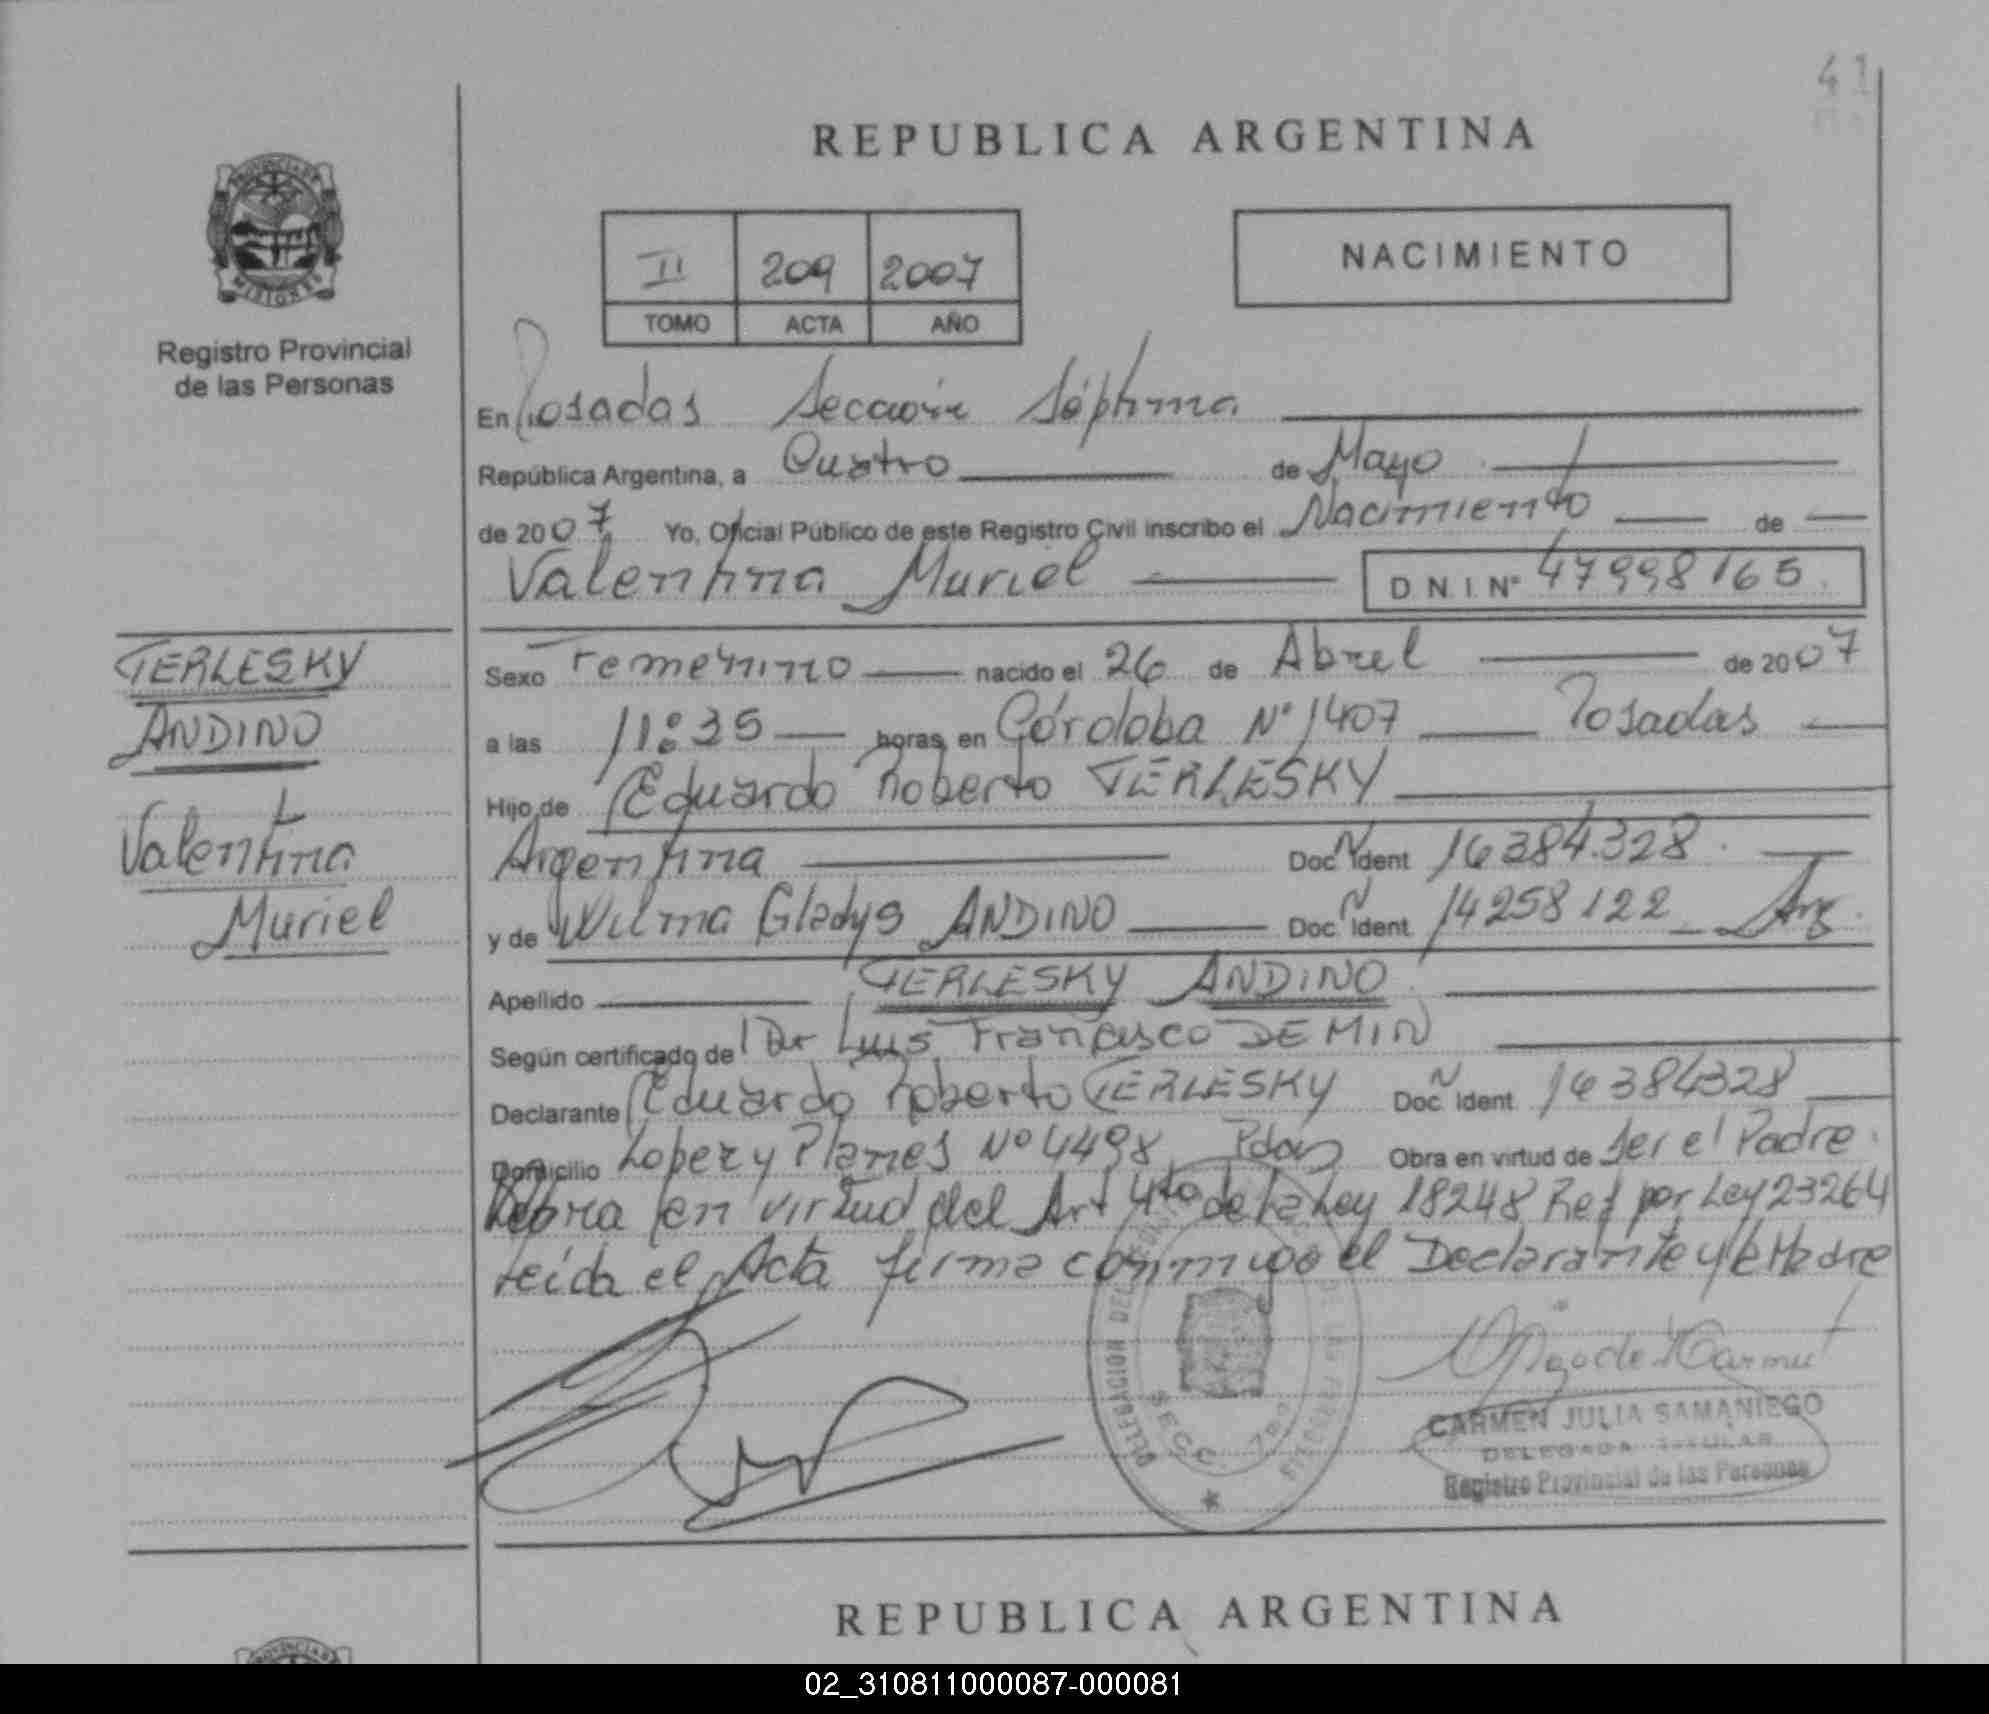 41
REPUBLICA ARGENTINA
PROVINCIA DE
MISIONES
Registro Provincial
de las Personas
II 209 2007
TOMO ACTA AÑO
NACIMIENTO
En Posadas Sección Séptima
República Argentina, a Cuatro de Mayo
de 2007 Yo, Oficial Público de este Registro Civil inscribo el Nacimiento de
Valentina Muriel D.N.I.N° 47998165
TERLESKY
ANDINO
Valentina
Muriel
Sexo Femenino nacido el 26 de Abril de 2007
a las 11:35 horas, en Córdoba N° 1407 Posadas
Hijo de Eduardo Roberto TERLESKY
Argentina Doc. Ident 16384.328
y de Wilma Gladys ANDINO Doc. Ident 14258122 Arg.
Apellido TERLESKY ANDINO
Según certificado de Dr Luis Francisco DEMIN
Declarante Eduardo Roberto TERLESKY Doc. Ident. 16384328
Domicilio Lopez y Planes N° 4498 Pdas Obra en virtud de ser el Padre.
Obra en virtud del Art 4to de la Ley 18248 Ref por Ley 23264
leída el Acta firma conmigo el Declarante y la Madre
SECC. 7ma
CARMEN JULIA SAMANIEGO
DELEGADA TITULAR
Registro Provincial de las Personas
REPUBLICA ARGENTINA
02_310811000087-000081